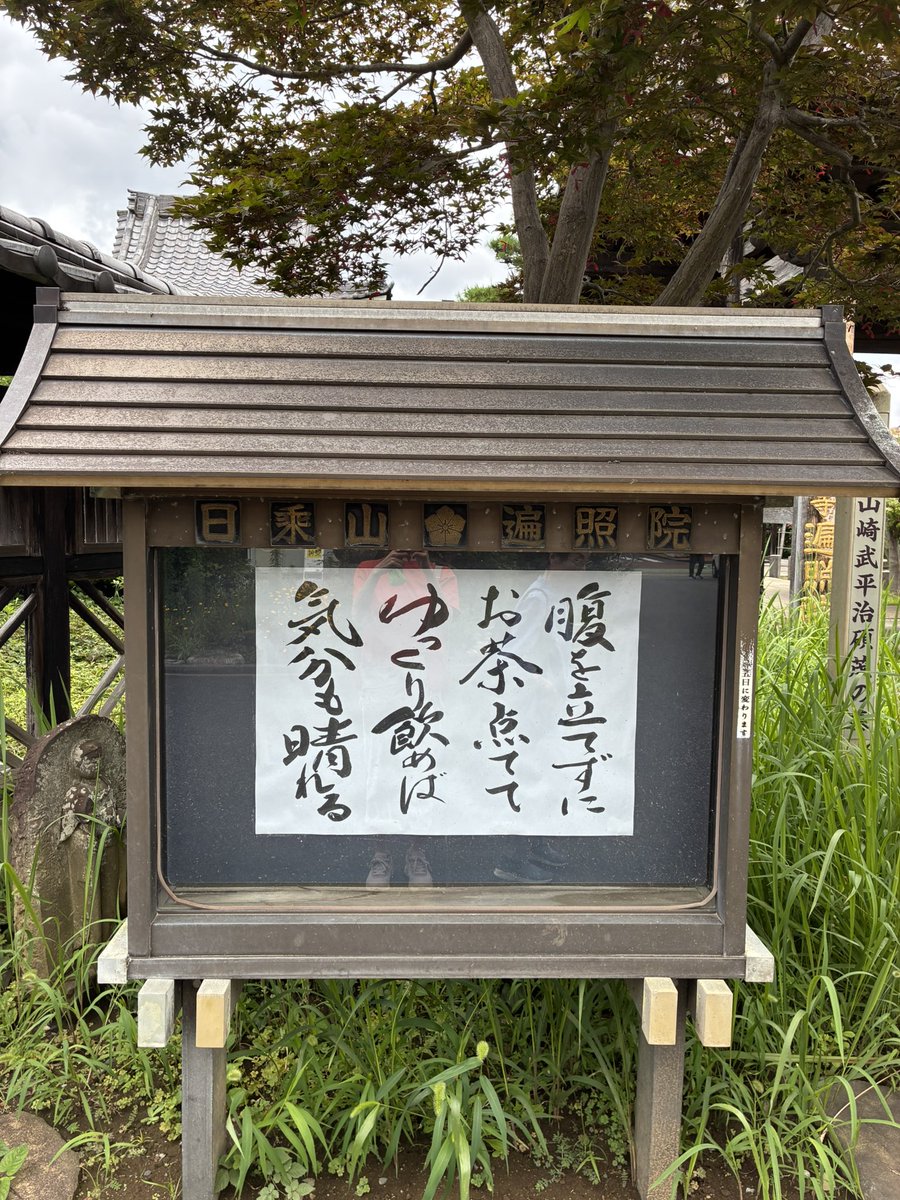 日乗山遍照院
腹を立てずに
お茶点てて
ゆっくり飲めば
気分も晴れる
五日に変わります
山崎武平治碩